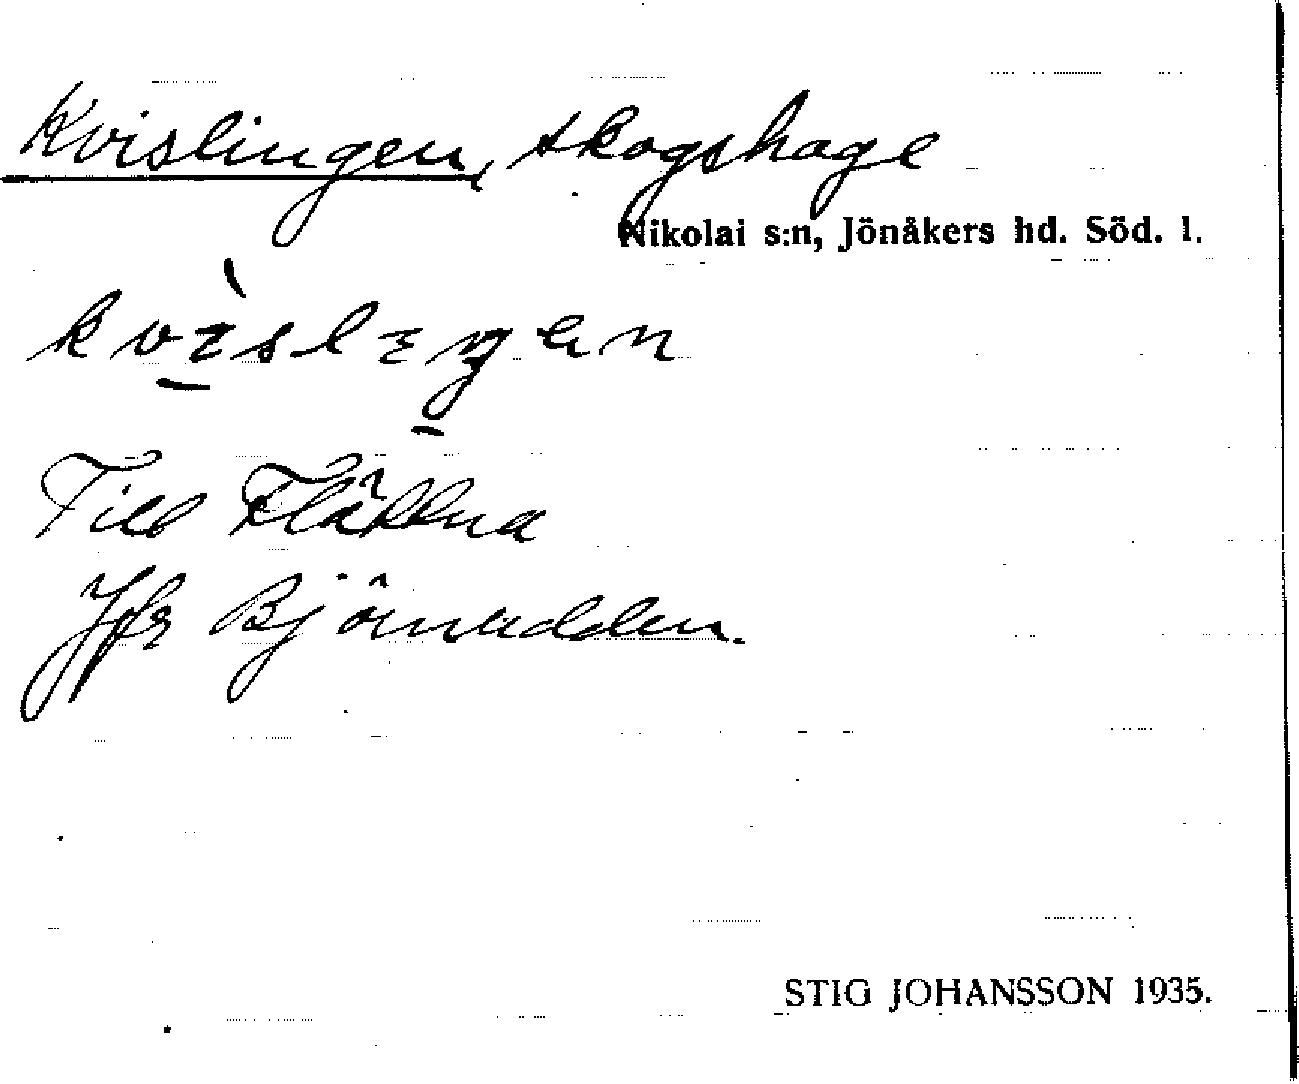 Kvislingen, skogshage
Nikolai s:n, Jönåkers hd. Söd. l.
Till Flättna
Jfr Björnudden.
STIG JOHANSSON 1935.